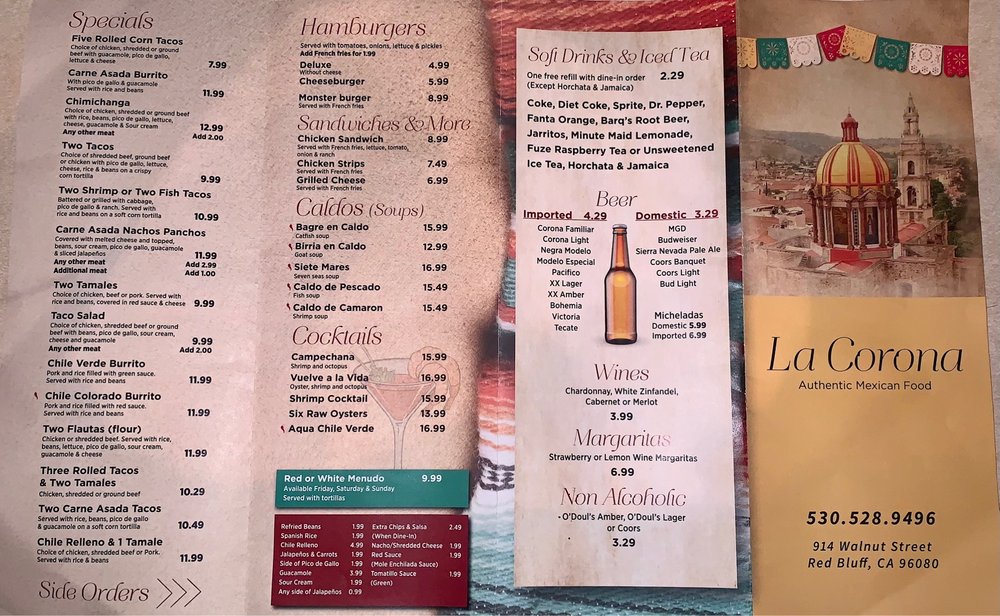 Specials
Five Rolled Corn Tacos
Choice of chicken, shredded or ground
beef with guacamole, pico de gallo,
lettuce & cheese 7.99
Carne Asada Burrito
With pico de gallo & guacamole
Served with rice and beans 11.99
Chimichanga
Choice of chicken, shredded or ground beef
with rice, beans, pico de gallo, lettuce,
cheese, guacamole & Sour cream 12.99
Any other meat Add 2.00
Two Tacos
Choice of shredded beef, ground beef
or chicken with pico de gallo, lettuce,
cheese, rice & beans on a crispy
corn tortilla 9.99
Two Shrimp or Two Fish Tacos
Battered or grilled with cabbage,
pico de gallo & ranch. Served with
rice and beans on a soft corn tortilla 10.99
Carne Asada Nachos Panchos
Covered with melted cheese and topped,
beans, sour cream, pico de gallo, guacamole
& sliced jalapeños 11.99
Any other meat Add 2.99
Additional meat Add 1.00
Two Tamales
Choice of chicken, beef or pork. Served with
rice and beans, covered in red sauce & cheese 9.99
Taco Salad
Choice of chicken, shredded beef or ground
beef with beans, pico de gallo, sour cream,
cheese and guacamole 9.99
Any other meat Add 2.00
Chile Verde Burrito
Pork and rice filled with green sauce.
Served with rice and beans 11.99
Chile Colorado Burrito
Pork and rice filled with red sauce.
Served with rice and beans 11.99
Two Flautas (flour)
Chicken or shredded beef. Served with rice,
beans, lettuce, pico de gallo, sour cream,
guacamole & cheese 11.99
Three Rolled Tacos
& Two Tamales
Chicken, shredded or ground beef 10.29
Two Carne Asada Tacos
Served with rice, beans, pico de gallo
& guacamole on a soft corn tortilla 10.49
Chile Relleno & 1 Tamale
Choice of chicken, shredded beef or Pork.
Served with rice & beans 11.99
Side Orders
Hamburgers
Served with tomatoes, onions, lettuce & pickles
Add French fries for 1.99
Deluxe 4.99
Without cheese
Cheeseburger 5.99
Monster burger 8.99
Served with French fries
Sandwiches & More
Chicken Sandwich 8.99
Served with French fries, lettuce, tomato,
onion & ranch
Chicken Strips 7.49
Served with French fries
Grilled Cheese 6.99
Served with French fries
Caldos (Soups)
Bagre en Caldo 15.99
Catfish soup
Birria en Caldo 12.99
Goat soup
Siete Mares 16.99
Seven seas soup
Caldo de Pescado 15.49
Fish soup
Caldo de Camaron 15.49
Shrimp soup
Cocktails
Campechana 15.99
Shrimp and octopus
Vuelve a la Vida 16.99
Oyster, shrimp and octopus
Shrimp Cocktail 15.99
Six Raw Oysters 13.99
Aqua Chile Verde 16.99
Red or White Menudo 9.99
Available Friday, Saturday & Sunday
Served with tortillas
Refried Beans 1.99
Spanish Rice 1.99
Chile Relleno 4.99
Jalapeños & Carrots 1.99
Side of Pico de Gallo 1.99
Guacamole 3.99
Sour Cream 1.99
Any side of Jalapeños 0.99
Extra Chips & Salsa 2.49
(When Dine-In)
Nacho/Shredded Cheese 1.99
Red Sauce 1.99
(Mole Enchilada Sauce)
Tomatillo Sauce 1.99
(Green)
Soft Drinks & Iced Tea
One free refill with dine-in order 2.29
(Except Horchata & Jamaica)
Coke, Diet Coke, Sprite, Dr. Pepper,
Fanta Orange, Barq's Root Beer,
Jarritos, Minute Maid Lemonade,
Fuze Raspberry Tea or Unsweetened
Ice Tea, Horchata & Jamaica
Beer
Imported 4.29
Corona Familiar
Corona Light
Negra Modelo
Modelo Especial
Pacifico
XX Lager
XX Amber
Bohemia
Victoria
Tecate
Domestic 3.29
MGD
Budweiser
Sierra Nevada Pale Ale
Coors Banquet
Coors Light
Bud Light
Micheladas
Domestic 5.99
Imported 6.99
Wines
Chardonnay, White Zinfandel,
Cabernet or Merlot
3.99
Margaritas
Strawberry or Lemon Wine Margaritas
6.99
Non Alcoholic
- O'Doul's Amber, O'Doul's Lager
or Coors
3.29
La Corona
Authentic Mexican Food
530.528.9496
914 Walnut Street
Red Bluff, CA 96080